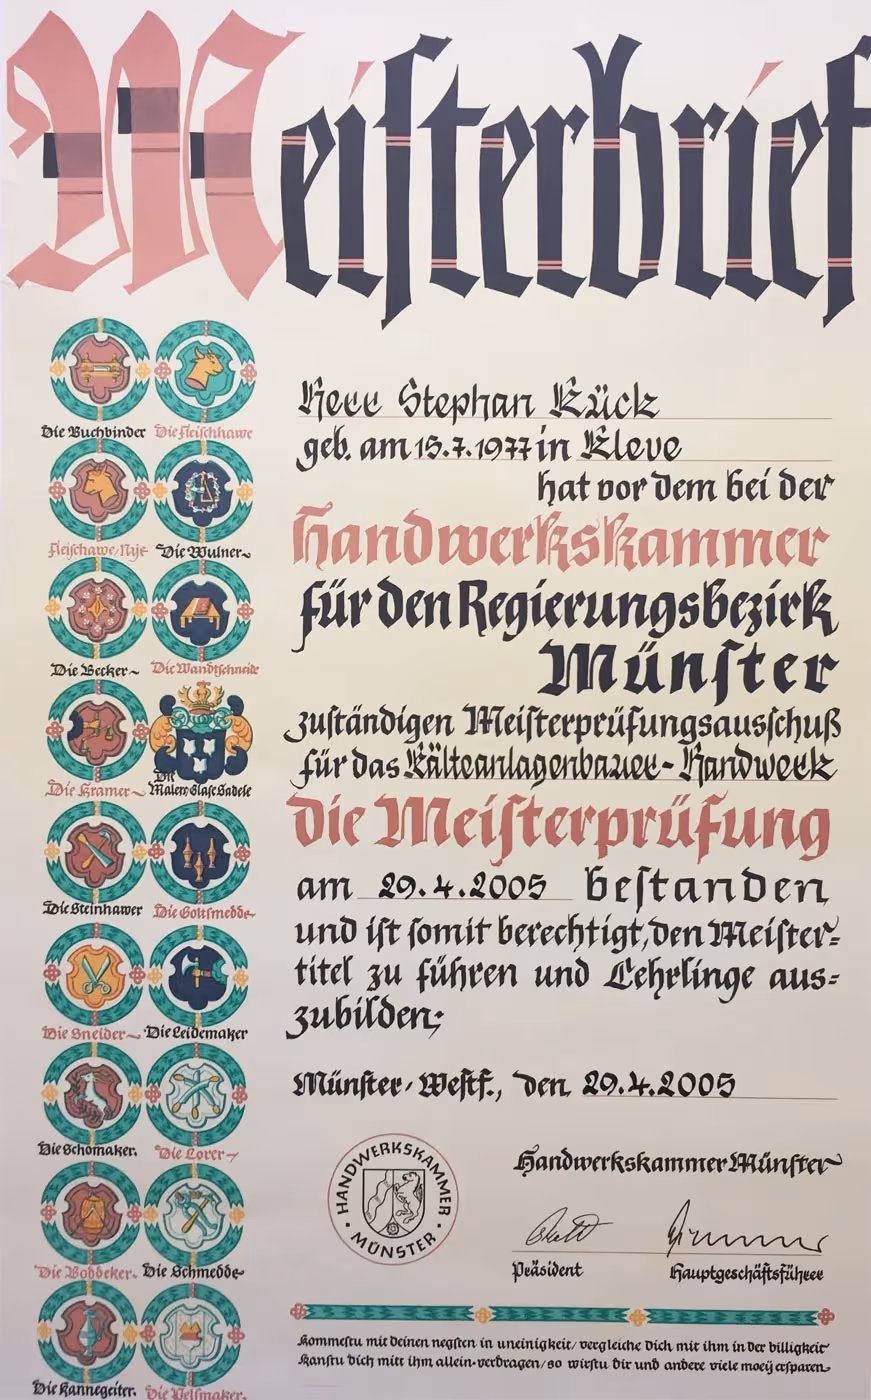 Meisterbrief
Herr Stephan Kück
geb. am 15.7.1977 in Kleve
hat vor dem bei der
Handwerkskammer
für den Regierungsbezirk
Münster
zuständigen Meisterprüfungsausschuß
für das Kälteanlagenbauer-Handwerk
die Meisterprüfung
am 29.4.2005 bestanden
und ist somit berechtigt, den Meister=
titel zu führen und Lehrlinge aus=
zubilden;
Münster, Westf., den 29.4.2005
Handwerkskammer Münster
HANDWERKSKAMMER
· MÜNSTER ·
Präsident Hauptgeschäftsführer
Kommestu mit deinen negsten in uneinigkeit/vergleiche dich mit ihm in der billigkeit
Kanstu dich mitt ihm allein verdragen/so wirstu dir und andere viele moeÿ ersparen
Die Buchbinder Die Fleischhawe
Fleischawe/Nije Die Wulner
Die Becker Die Wandtschneide
Die Kramer Die Maler, Glase, Sadele
Die Steinhawer Die Goltsmedde
Die Sneider Die Leidemaker
Die Schomaker. Die Lorer
Die Boddeker. Die Schmedde
Die Kannegeiter. Die Pelsmaker.